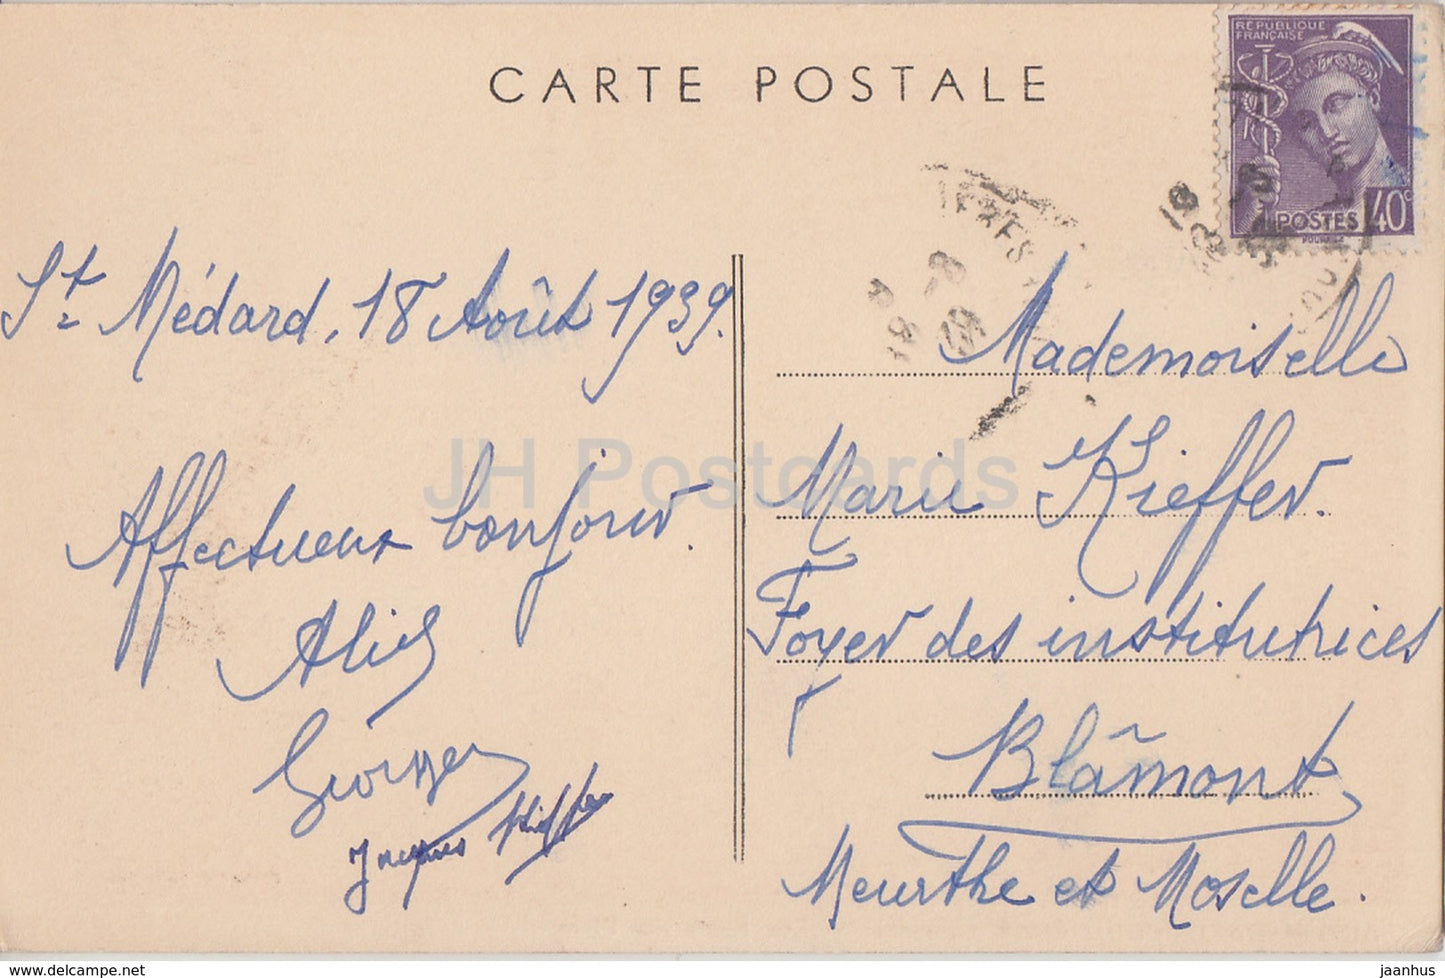 CARTE POSTALE
RÉPUBLIQUE
FRANÇAISE
POSTES 40c
St Médard, 18 Août 1939.
Affectueux bonjour.
Alice
Georges
Jacques Kieffer
Mademoiselle
Marie Kieffer.
Foyer des institutrices
Blâmont
Meurthe et Moselle.
JH Postcards
delcampe.net
jaanhus